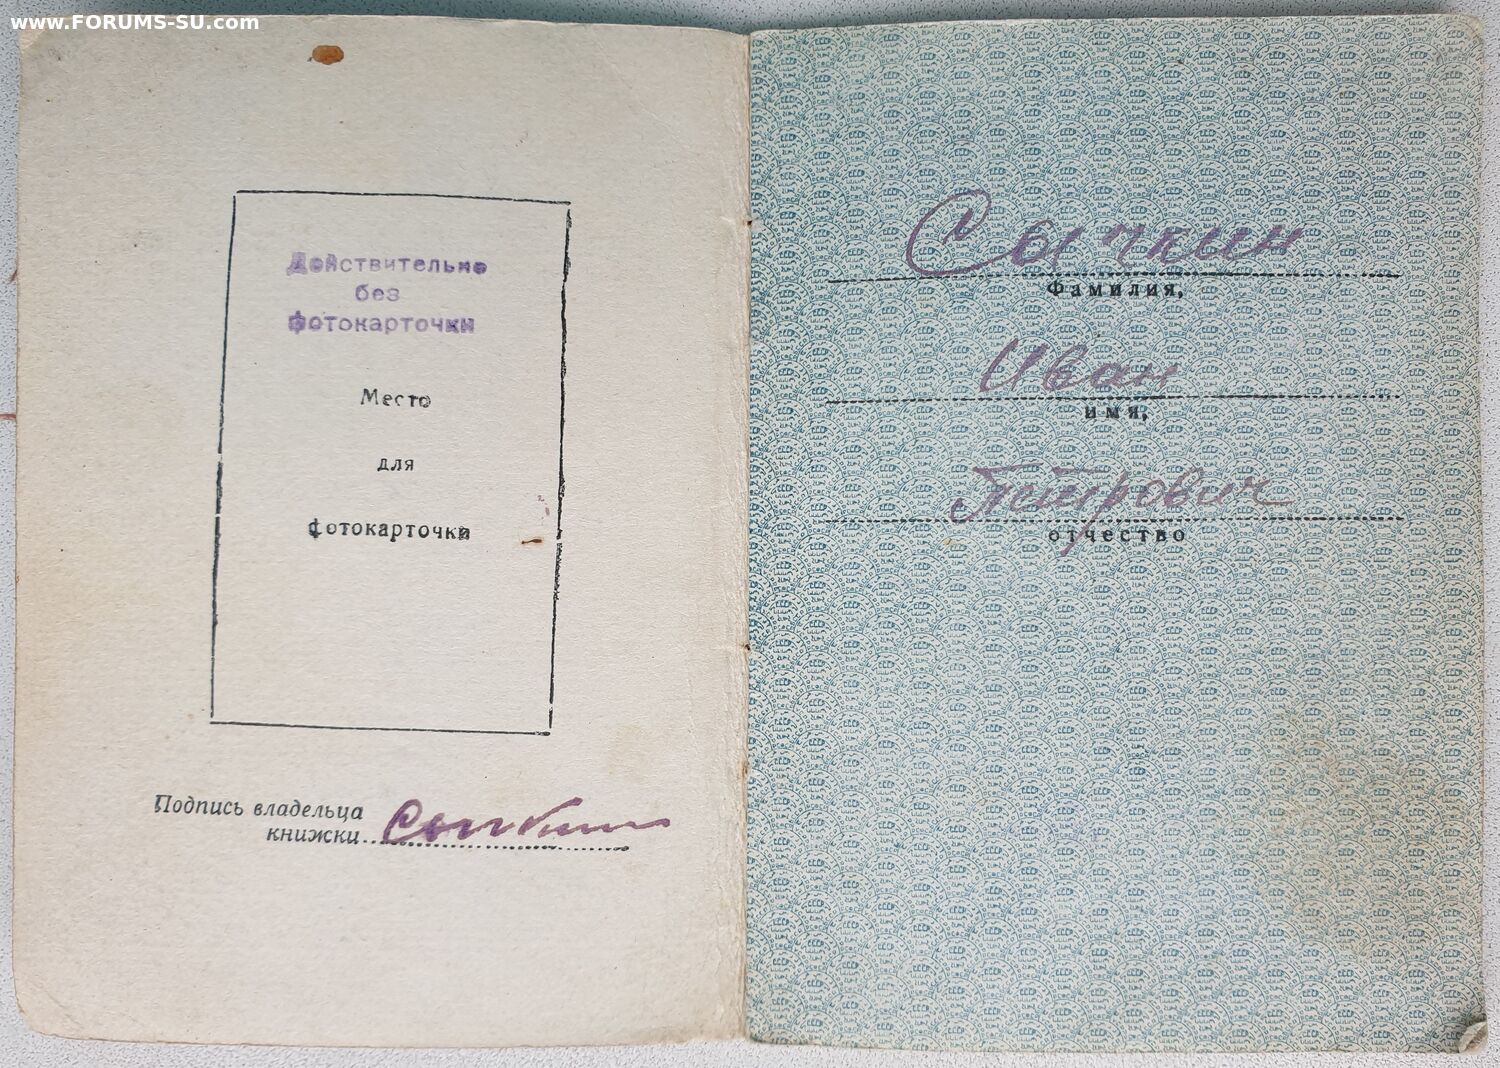 www.FORUMS-SU.com
Действительно
без
фотокарточки
Место
для
фотокарточки
Подпись владельца
книжки
Сычкин
Сычкин
Фамилия,
Иван
имя,
Петрович
отчество